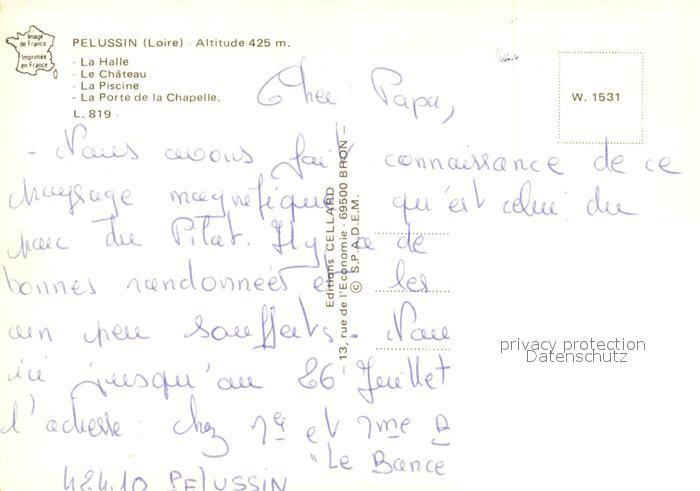 Image
de France
Imprimée
en France
PELUSSIN (Loire) - Altitude 425 m.
- La Halle
- Le Château
- La Piscine
- La Porte de la Chapelle.
L. 819 -
W. 1531
Editions CELLARD
- 13, rue de l'Economie - 69500 BRON -
© S.P.A.D.E.M.
Cher Papa,
- Nous avons fait connaissance de ce
paysage magnifique qu'est celui du
parc du Pilat. Il y a de
bonnes randonnées et les
un peu
ici jusqu'au 26 Juillet
l'adresse : chez Mr et Mme
"Le
42410 PELUSSIN
privacy protection
Datenschutz